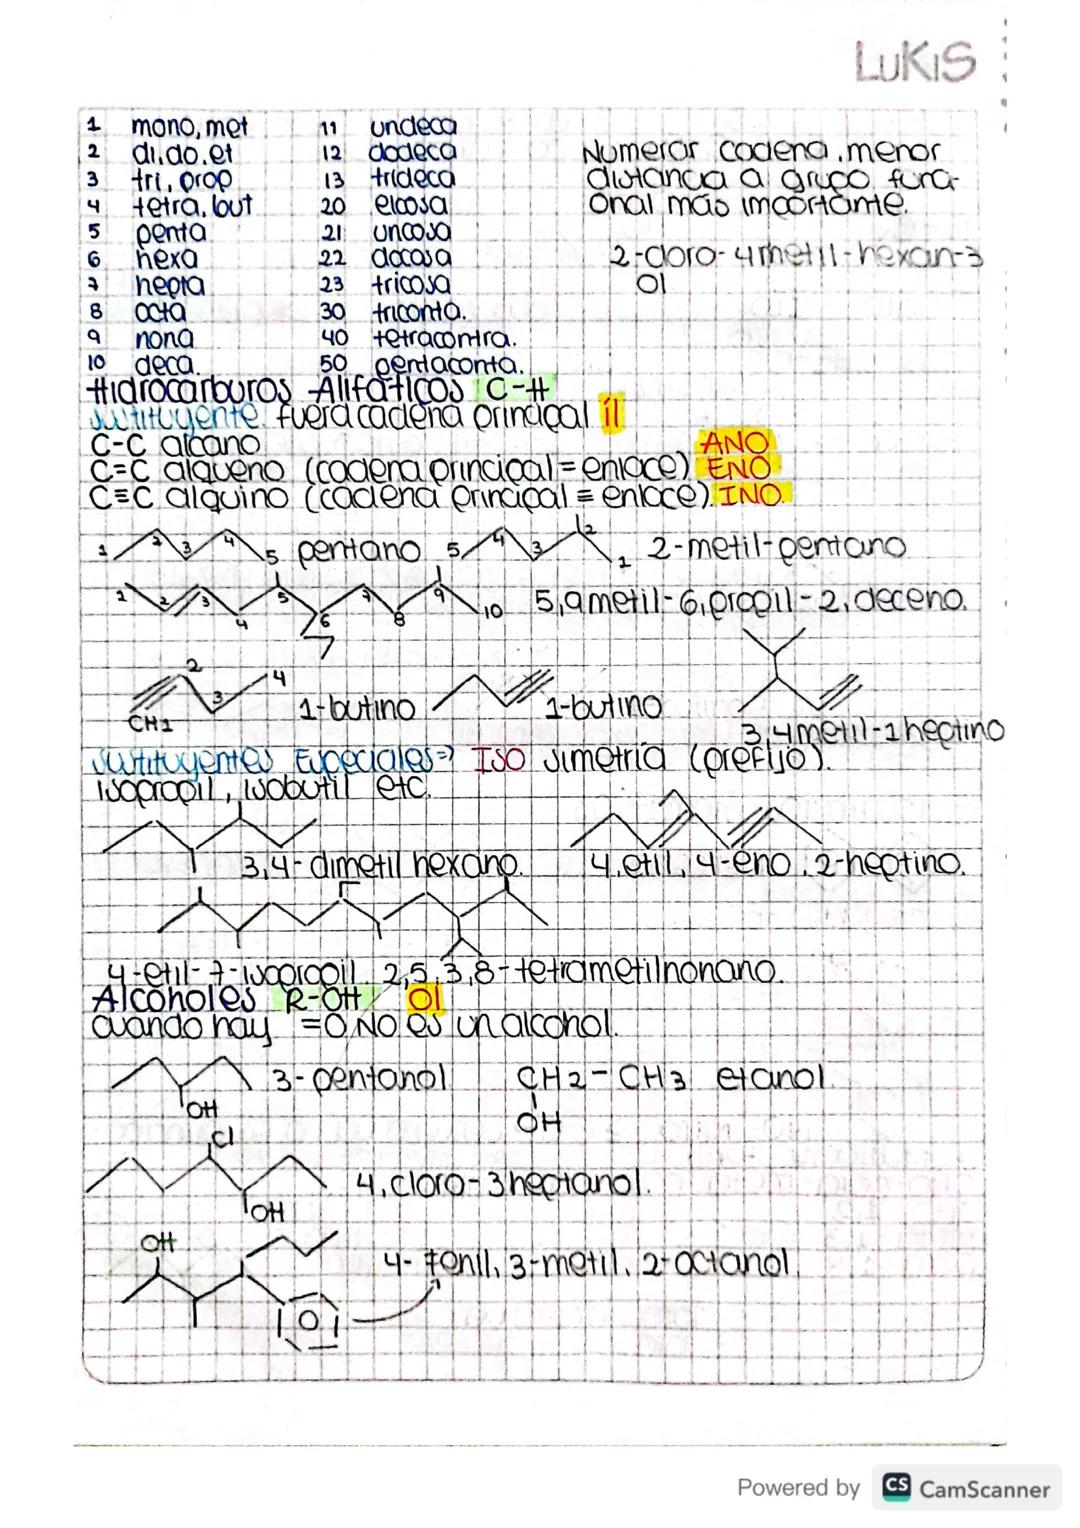 LUKIS
1 mono, met 11 undeca
2 di, do, et 12 dodeca
3 tri, prop 13 trideca
4 tetra, but 20 eicosa
5 penta 21 uncosa
6 hexa 22 docosa
7 hepta 23 tricosa
8 octa 30 triconta.
9 nona 40 tetracontra.
10 deca. 50 pentaconta.
Numerar cadena, menor
distancia a grupo funci-
onal más importante.
2-cloro-4metil-hexan-3
ol
Hidrocarburos Alifáticos C-H
sustituyente fuera cadena principal il
C-C alcano ANO
C=C alqueno (cadena principal = enlace) ENO
C≡C alquino (cadena principal ≡ enlace). INO.
1 2 3 4 5 pentano 5 4 3 2 1 2-metil-pentano
1 2 3 4 5 6 7 8 9 10 5,9metil-6,propil-2,deceno.
CH1 2 3 4 1-butino 1-butino
3,4metil-1heptino
Sustituyentes Especiales=> ISO simetría (prefijo).
isopropil, isobutil etc.
3,4-dimetil hexano. 4,etil, 4-eno, 2-heptino.
4-etil-7-isopropil, 2,5,3,8-tetrametilnonano.
Alcoholes R-OH Ol
cuando hay =O NO es un alcohol.
3-pentanol CH2-CH3 etanol
OH OH
Cl
4,cloro-3heptanol.
OH
OH
4-fenil, 3-metil, 2-octanol.
Powered by CS CamScanner